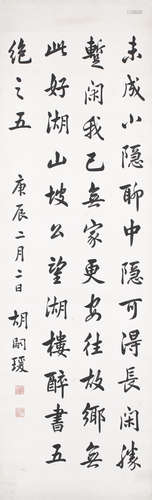 未成小隱聊中隱可得長閑勝
蹔閑我已無家更安往故鄉無
此好湖山坡公望湖樓醉書五
絕之五
庚辰二月二日胡嗣瑗